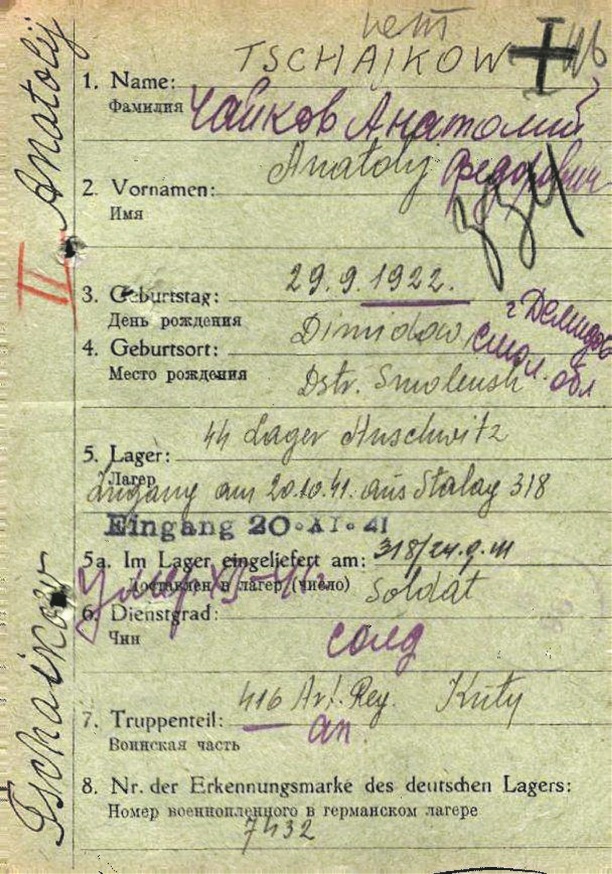 нет
TSCHAJKOW
1. Name:
Фамилия
Чайков Анатолий
Anatolij Федорович
2. Vornamen:
Имя
29.9.1922.
3. Geburtstag:
День рождения
Dimidow
г Демидов
4. Geburtsort:
Смол. обл
Место рождения
Dstr. Smolensk
Lager Auschwitz
5. Lager:
Лагер
Zugang am 20.10.41. aus Stalag 318
Eingang 20.XI.41
5a. Im Lager eingeliefert am: 318/24.9.
доставлен в лагер (число)
Soldat
6. Dienstgrad:
Чин
солд
416 Art. Reg.
7. Truppenteil:
ап
Воинская часть
8. Nr. der Erkennungsmarke des deutschen Lagers:
Номер военнопленного в германском лагере
7432
Tschaikow
II
Anatolij